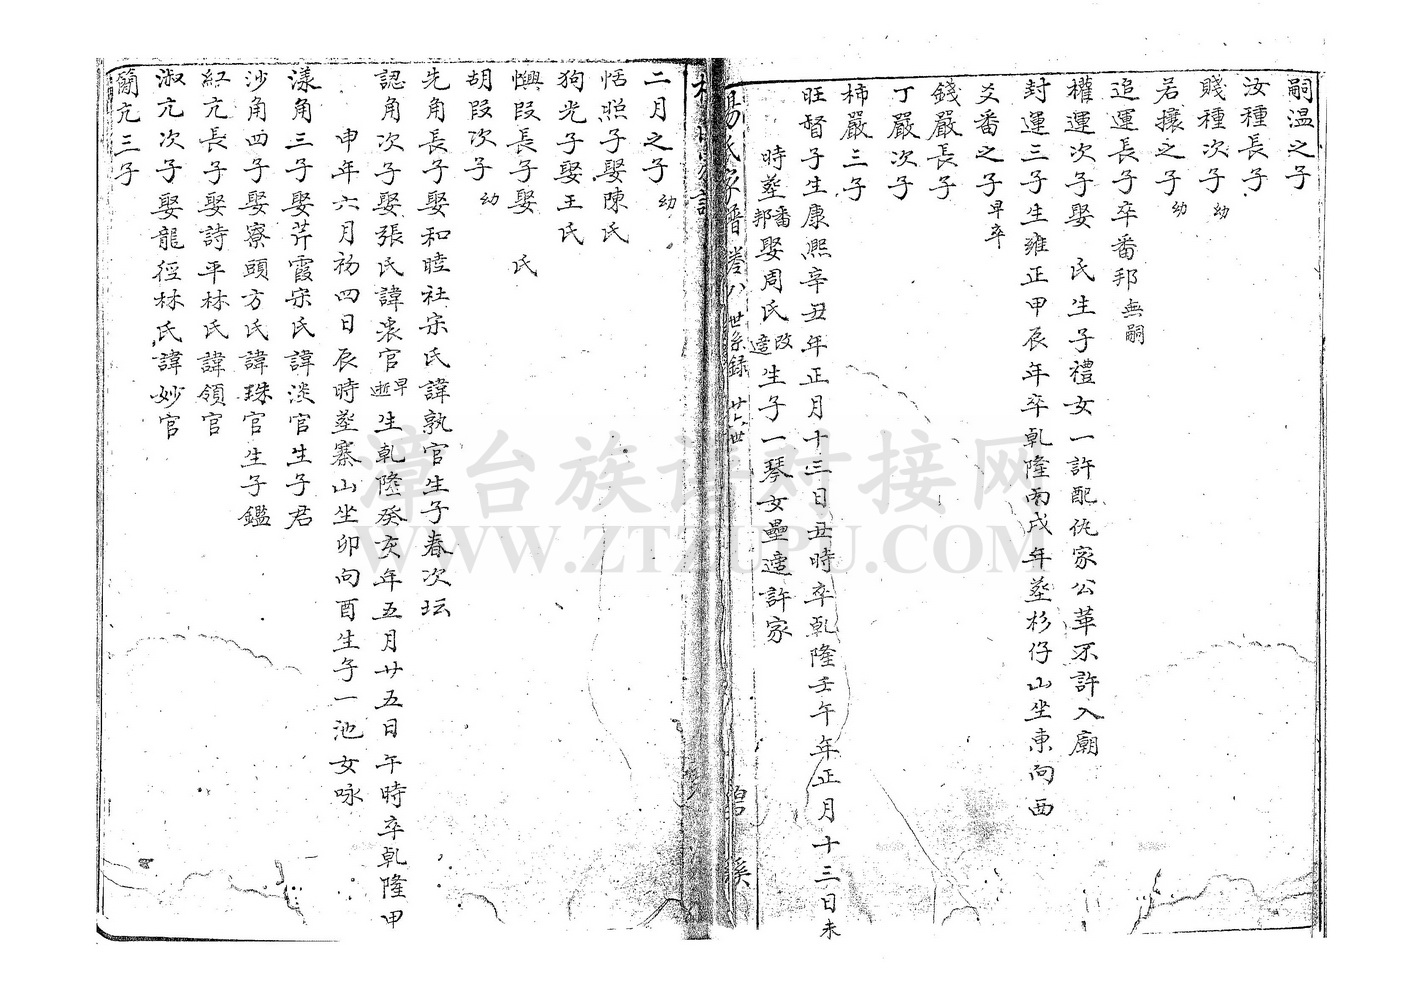 嗣溫之子
汝種長子
賤種次子 幼
若攘之子 幼
追運長子卒番邦無嗣
權運次子娶 氏生子禮女一許配仇家公革不許入廟
封運三子生雍正甲辰年卒乹隆丙戌年塟杉仔山坐東向西
爻番之子 早卒
錢嚴長子
丁嚴次子
柿嚴三子
旺督子生康熙辛丑年正月十三日丑時卒乹隆壬午年正月十三日未
時塟番邦娶周氏改適生子一琴女壘適許家
楊氏家譜 卷八 世系録 廿六世 碧溪
二月之子 幼
恬照子娶陳氏
狗光子娶王氏
懙叚長子娶 氏
胡叚次子 幼
先角長子娶和睦社宋氏諱孰官生子春次坛
認角次子娶張氏諱衮官早逝生乹隆癸亥年五月廿五日午時卒乹隆甲
申年六月初四日辰時塟寨山坐卯向酉生子一池女咏
漾角三子娶芹霞宋氏諱淡官生子君
沙角四子娶寮頭方氏諱珠官生子鑑
紅亢長子娶詩平林氏諱領官
淑亢次子娶龍徑林氏諱妙官
蘭亢三子
漳台族谱对接网
WWW.ZTZUPU.COM